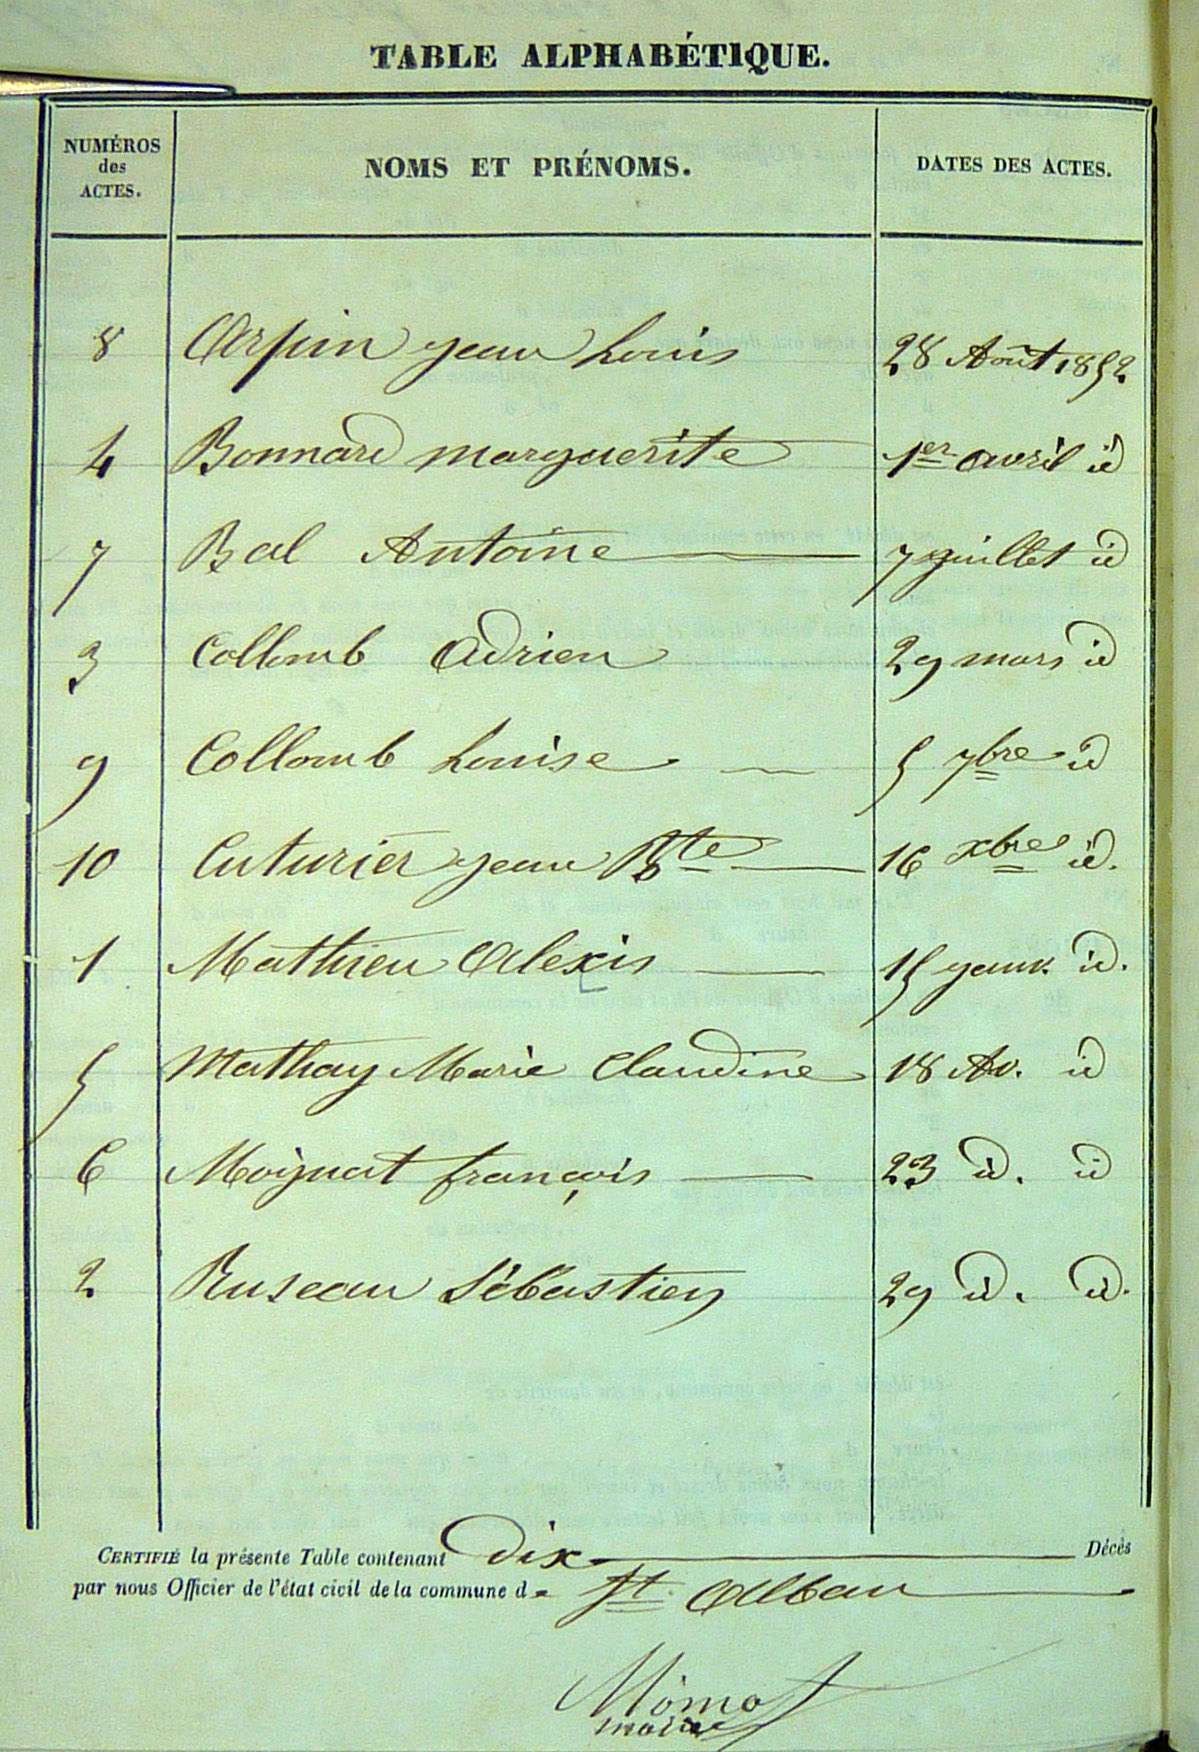 TABLE ALPHABÉTIQUE.
NUMÉROS
des
ACTES.
NOMS ET PRÉNOMS.
DATES DES ACTES.
8 Arpin jean Louis 28 Août 1852
4 Bonnard marguerite 1er avril id
7 Bal Antoine 7 juillet id
3 Collomb Adrien 29 mars id
9 Collomb Louise 5 7bre id
10 Cuturier jean Bte 16 xbre id.
1 Mathieu Alexis 15 janv. id.
5 Mathay Marie Claudine 18 Av. id
6 Moignat françois 23 id. id
2 Ruseau Sébastien 29 id. id.
CERTIFIÉ la présente Table contenant dix Décès
par nous Officier de l'état civil de la commune de St Alban
maire